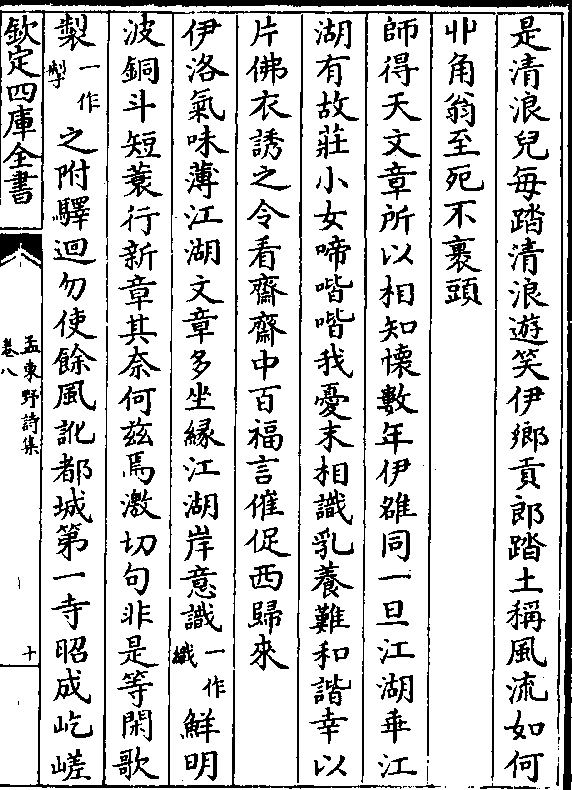 是清浪兒每踏清浪遊笑伊鄉貢郎踏土稱風流如何
丱角翁至死不裹頭
師得天文章所以相知懷數年伊雒同一旦江湖乖江
湖有故莊小女啼喈喈我憂未相識乳養難和諧幸以
片佛衣誘之令看齋齋中百福言催促西歸來
伊洛氣味薄江湖文章多坐緣江湖岸意識一作織鮮明
波銅斗短蓑行新章其奈何兹焉激切句非是等閑歌
製一作掣之附驛迴勿使餘風訛都城第一寺昭成屹嵯
欽定四庫全書
孟東野詩集
卷八
十